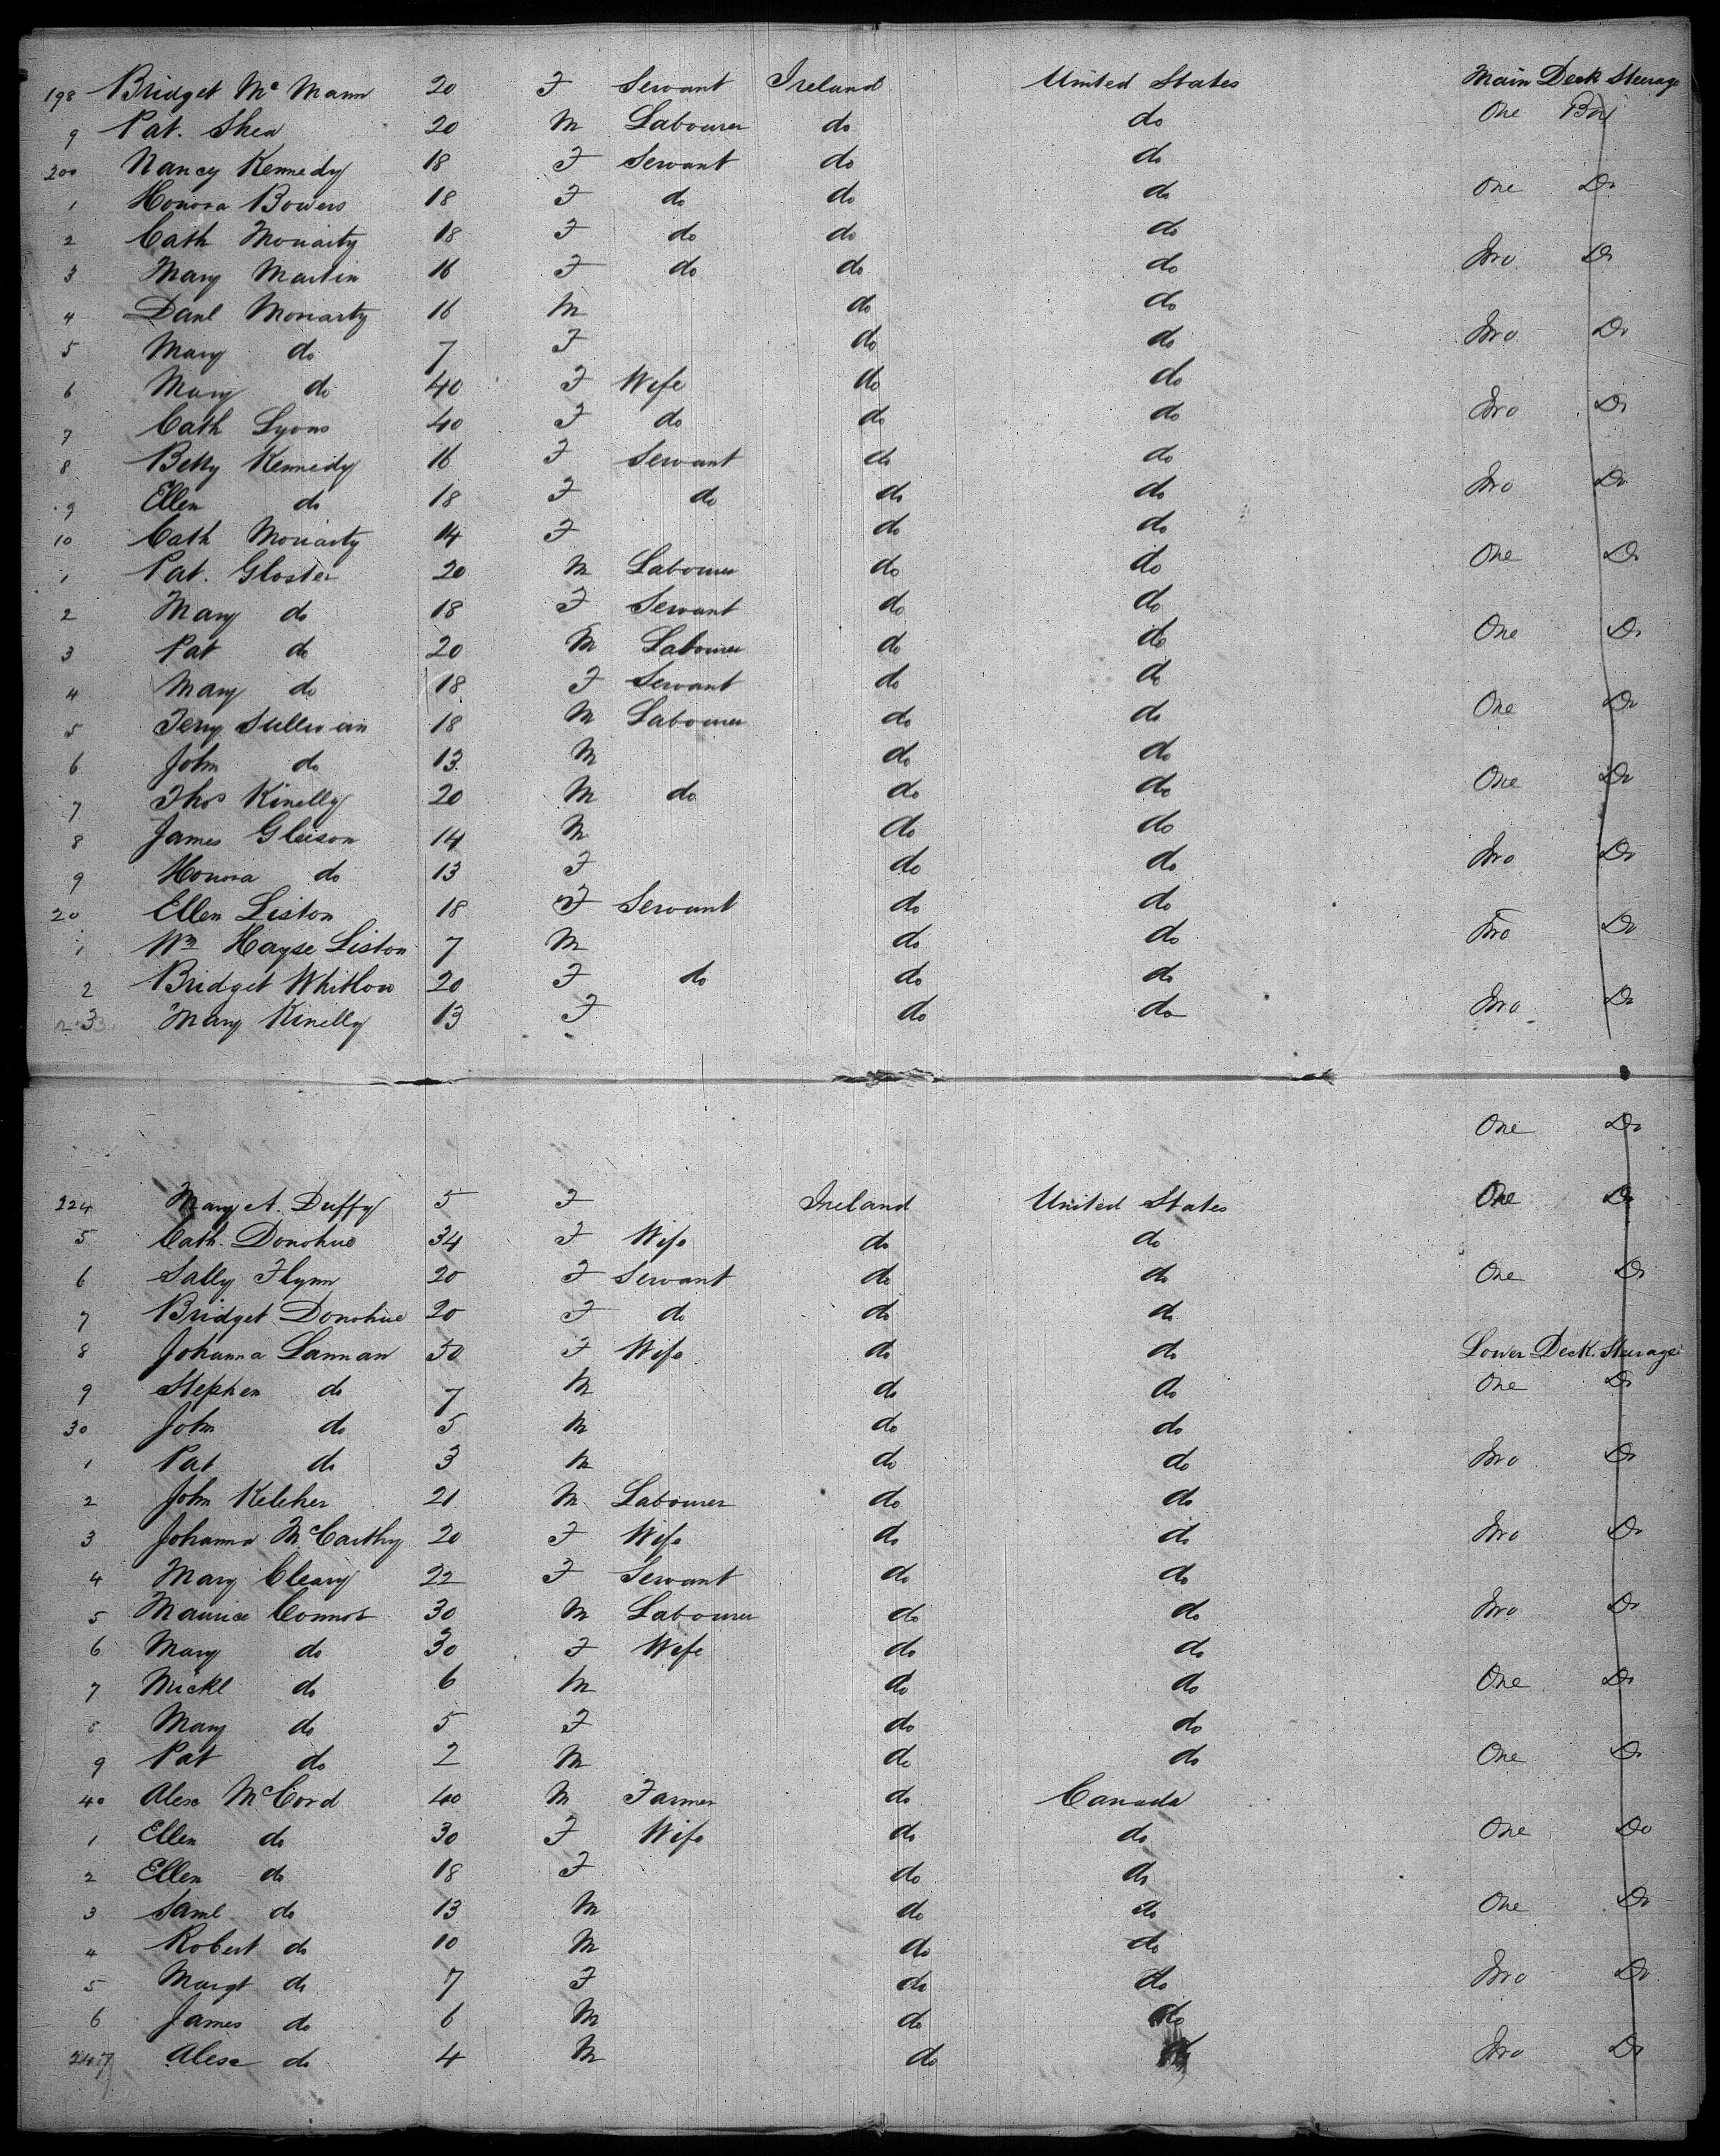 198 Bridget Mc Mann 20 F Servant Ireland United States Main Deck Steerage
9 Pat. Shea 20 M Labourer do do One
200 Nancy Kennedy 18 F Servant do do
1 Honora Bowers 18 F do do do One Do
2 Cath Moriarty 18 F do do do
3 Mary Martin 16 F do do do Two Do
4 Danl Moriarty 16 M do do
5 Mary do 7 F do do Two Do
6 Mary do 40 F Wife do do
7 Cath Lyons 40 F do do do Two Do
8 Betty Kennedy 16 F Servant do do
9 Ellen do 18 F do do do Two Do
10 Cath Moriarty 14 F do do
1 Pat. Gloster 20 M Labourer do do One Do
2 Mary do 18 F Servant do do
3 Pat do 20 M Labourer do do One Do
4 Mary do 18 F Servant do do
5 Terry Sullivan 18 M Labourer do do One Do
6 John do 13 M do do
7 Thos Kinelly 20 M do do do One Do
8 James Gleison 14 M do do
9 Honora do 13 F do do Two Do
20 Ellen Liston 18 F Servant do do
1 Wm Hayse Liston 7 M do do Two Do
2 Bridget Whitlow 20 F do do do
3 Mary Kinelly 13 F do do Two Do
One Do
224 Mary A. Duffy 5 F Ireland United States One Do
5 Cath. Donohue 34 F Wife do do
6 Sally Flynn 20 F Servant do do One Do
7 Bridget Donohue 20 F do do do
8 Johanna Lannan 50 F Wife do do Lower Deck. Steerage
9 Stephen do 7 M do do One Do
30 John do 5 M do do
1 Pat do 3 M do do Two Do
2 John Keleher 21 M Labourer do do
3 Johanna McCarthy 20 F Wife do do Two Do
4 Mary Cleary 22 F Servant do do
5 Maurice Connor 30 M Labourer do do Two Do
6 Mary do 30 F Wife do do
7 Mickl do 6 M do do One Do
8 Mary do 5 F do do
9 Pat do 2 M do do One Do
40 Alexr McCord 40 M Farmer do Canada
1 Ellen do 30 F Wife do do One Do
2 Ellen do 18 F do do
3 Saml do 13 M do do One Do
4 Robert do 10 M do do
5 Margt do 7 F do do Two Do
6 James do 6 M do do
247 Alexr do 4 M do Two Do